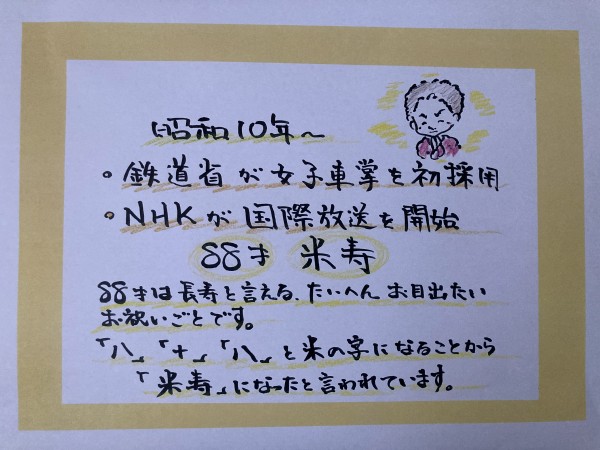 昭和10年〜
・鉄道省が女子車掌を初採用
・NHKが国際放送を開始
88才 米寿
88才は長寿と言える、たいへんお目出たい
お祝いごとです。
「八」「十」「八」と米の字になることから
「米寿」になったと言われています。